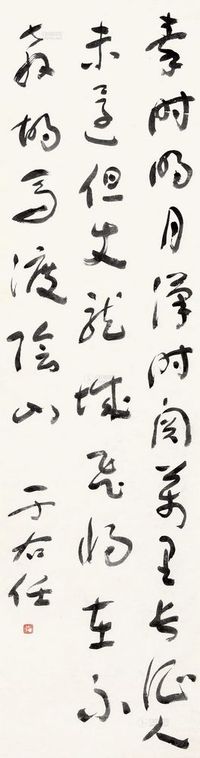 秦时明月汉时关万里长征人
未还但使龙城飞将在不
教胡马渡阴山
于右任